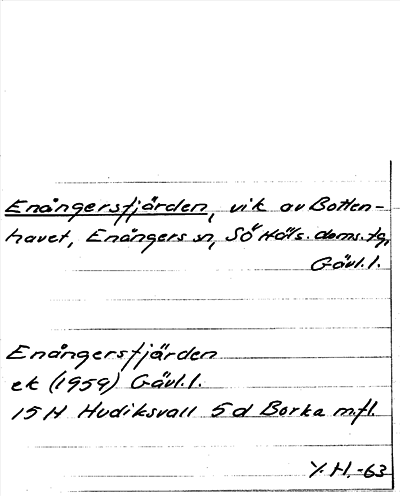 Enångersfjärden, vik av Botten-
havet, Enångers sn, Sö Häls. doms. tg,
Gävl. l.
Enångersfjärden
ek (1959) Gävl. l.
15 H Hudiksvall 5 d Borka m.fl.
Y. H. -63